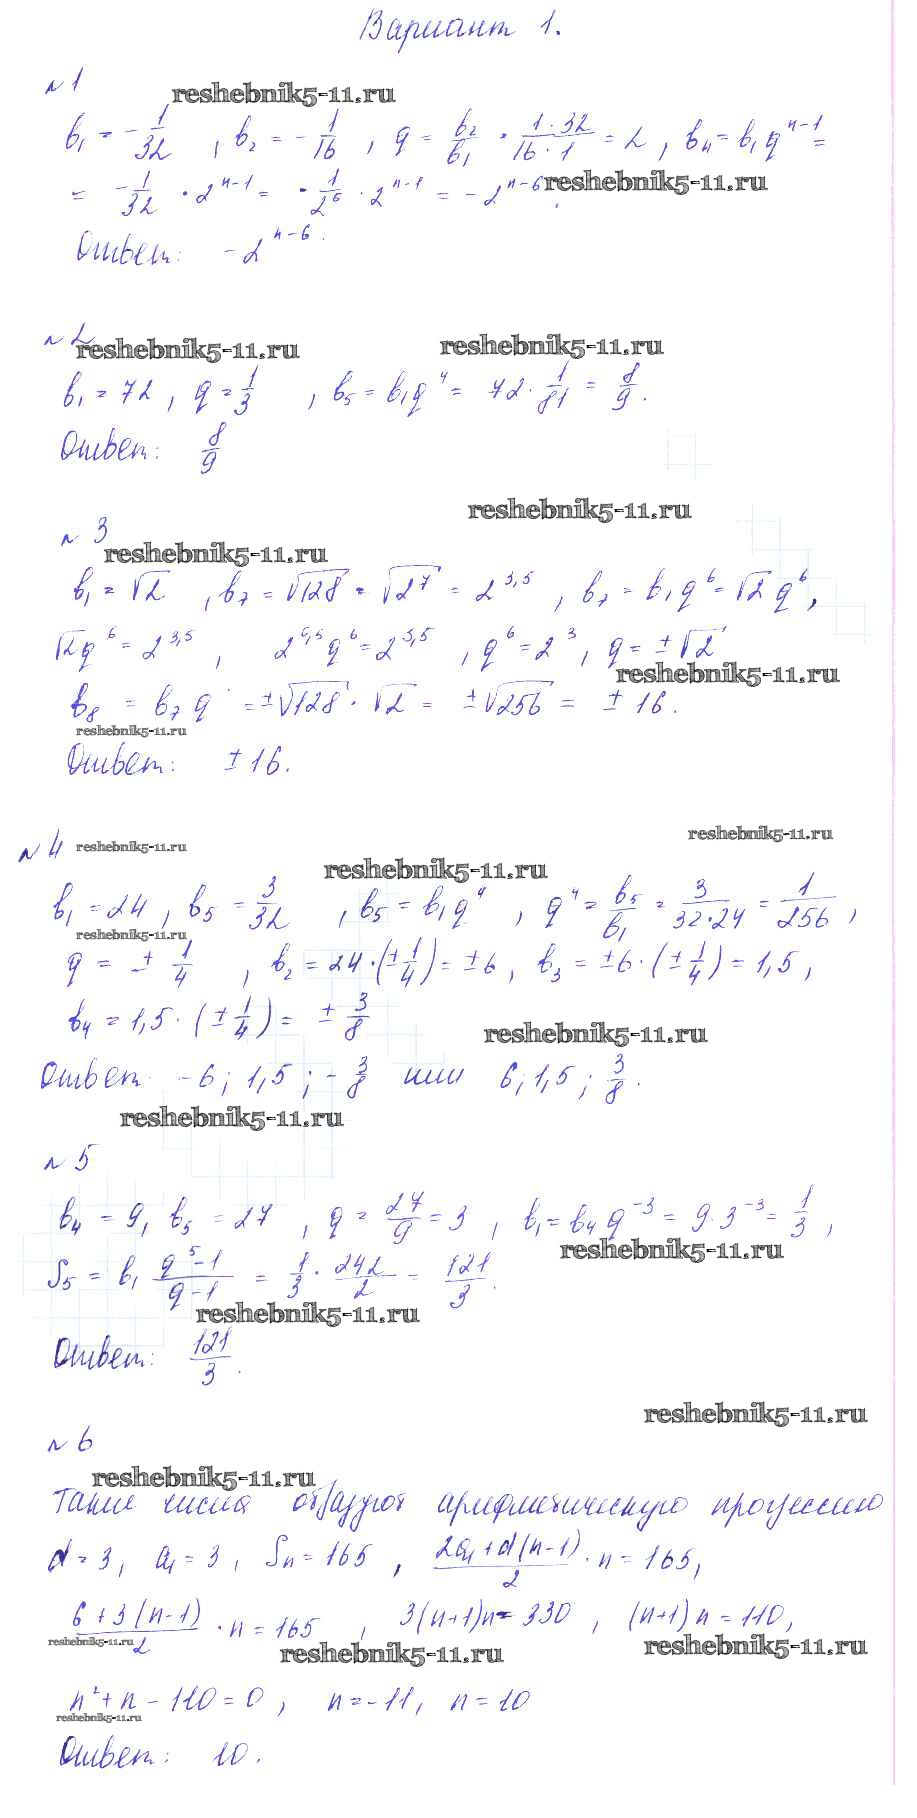 Вариант 1.
№1
reshebnik5-11.ru
b₁ = -1/32, b₂ = -1/16, q = b₂/b₁ = (1·32)/(16·1) = 2, bₙ = b₁qⁿ⁻¹ =
= -1/32 · 2ⁿ⁻¹ = -1/2⁶ · 2ⁿ⁻¹ = -2ⁿ⁻⁶. reshebnik5-11.ru
Ответ: -2ⁿ⁻⁶.
№2
reshebnik5-11.ru reshebnik5-11.ru
b₁ = 72, q = 1/3, b₅ = b₁q⁴ = 72 · 1/81 = 8/9.
Ответ: 8/9
reshebnik5-11.ru
№3
reshebnik5-11.ru
b₁ = √2, b₇ = √128 = √2⁷ = 2^3,5, b₇ = b₁q⁶ = √2 q⁶,
√2q⁶ = 2^3,5, 2^0,5 q⁶ = 2^3,5, q⁶ = 2³, q = ±√2
reshebnik5-11.ru
b₈ = b₇q = ±√128 · √2 = ±√256 = ±16.
reshebnik5-11.ru
Ответ: ±16.
№4 reshebnik5-11.ru reshebnik5-11.ru
reshebnik5-11.ru
b₁ = 24, b₅ = 3/32, b₅ = b₁q⁴, q⁴ = b₅/b₁ = 3/(32·24) = 1/256,
reshebnik5-11.ru
q = ±1/4, b₂ = 24·(±1/4) = ±6, b₃ = ±6·(±1/4) = 1,5,
b₄ = 1,5·(±1/4) = ±3/8
reshebnik5-11.ru
Ответ -6; 1,5; -3/8 или 6; 1,5; 3/8.
reshebnik5-11.ru
№5
b₄ = 9, b₅ = 27, q = 27/9 = 3, b₁ = b₄q⁻³ = 9·3⁻³ = 1/3,
reshebnik5-11.ru
S₅ = b₁ (q⁵-1)/(q-1) = 1/3 · 242/2 = 121/3.
reshebnik5-11.ru
Ответ: 121/3.
reshebnik5-11.ru
№6
reshebnik5-11.ru
Такие числа образуют арифметическую прогрессию
d = 3, a₁ = 3, Sₙ = 165, (2a₁+d(n-1))/2 · n = 165,
(6+3(n-1))/2 · n = 165, 3(n+1)n = 330, (n+1)n = 110,
reshebnik5-11.ru reshebnik5-11.ru reshebnik5-11.ru
n²+n-110=0, n=-11, n=10
reshebnik5-11.ru
Ответ: 10.